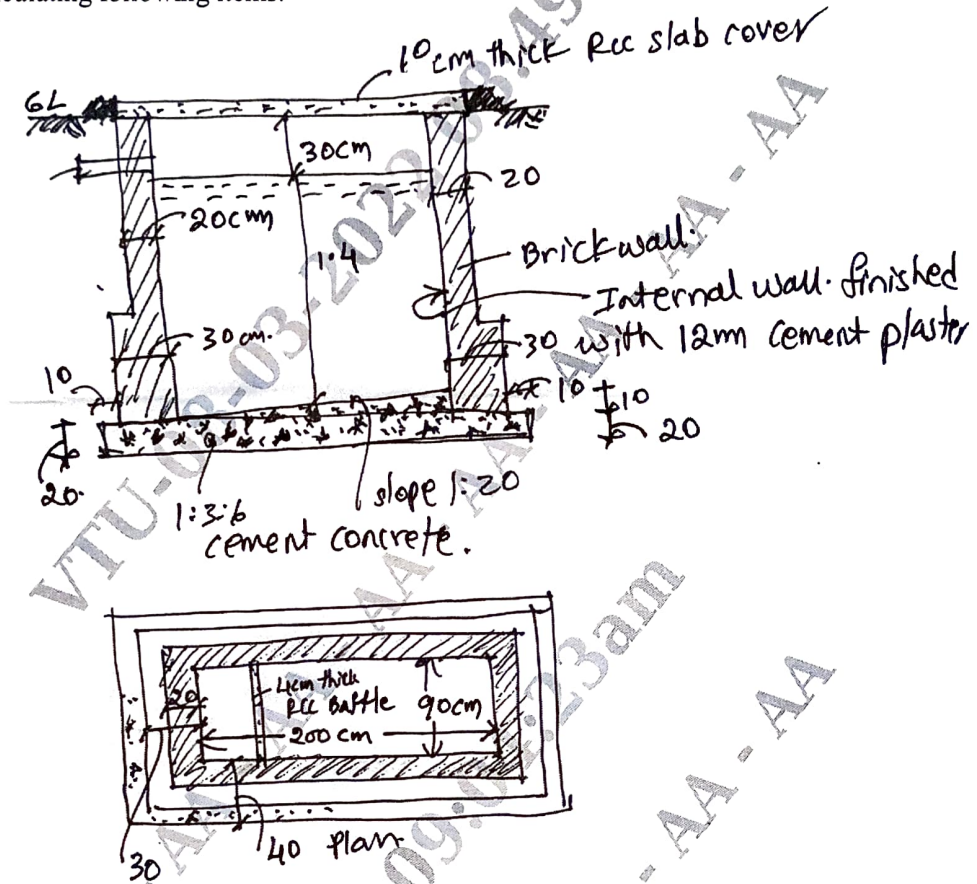 culating following items.
10 cm thick Rcc slab cover
GL
30cm
20
20cm
1.4
Brick wall.
Internal wall. finished
with 12mm cement plaster
30 cm.
30
10
10
10
20
20.
1:3:6
cement concrete.
slope 1:20
4cm thick
RCC Baffle
20
90cm
200 cm
30
40
Plan
VTU-08-03-2022
AA - AA
AA - AA
09:02:23am
AA - AA